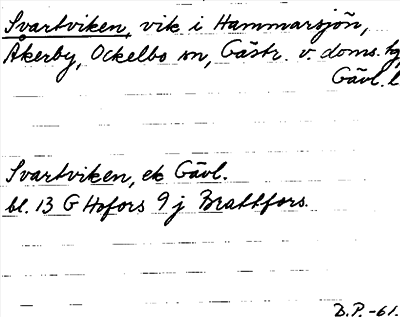 Svartviken, vik i Hammarsjön,
Åkerby, Ockelbo sn, Gästr. v. doms. tg,
Gävl. l
Svartviken, ek Gävl.
bl. 13 G Hofors 9 j Brattfors.
D.P. -61.